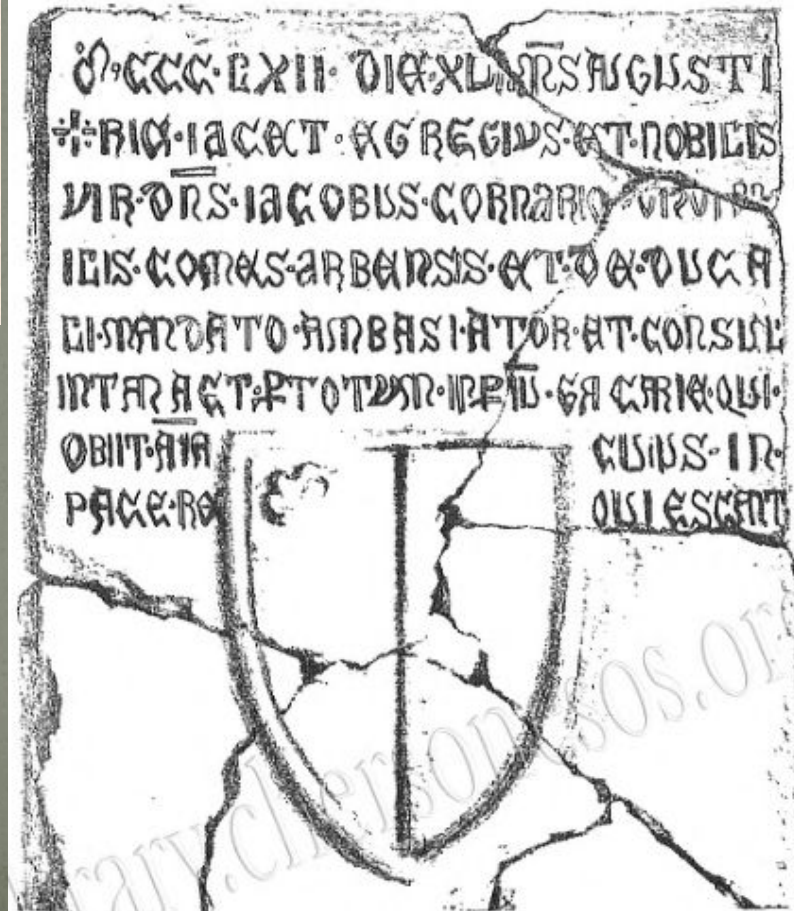 M·CCC·LXII· DIE·XV MS AUGUSTI
HIC·IACET·EGREGIVS·ET·NOBILIS
VIR·DNS·IACOBUS·CORNARIO
ILIS·COMES·ARBENSIS·ET·DE·DUCA
LI·MANDATO·AMBASIATOR·ET·CONSUL
IN TANA ET·P TOTUM·INPIU·GACARIE·QUI·
OBIIT·AIA CUIUS·IN·
PACE·RE QUIESCANT